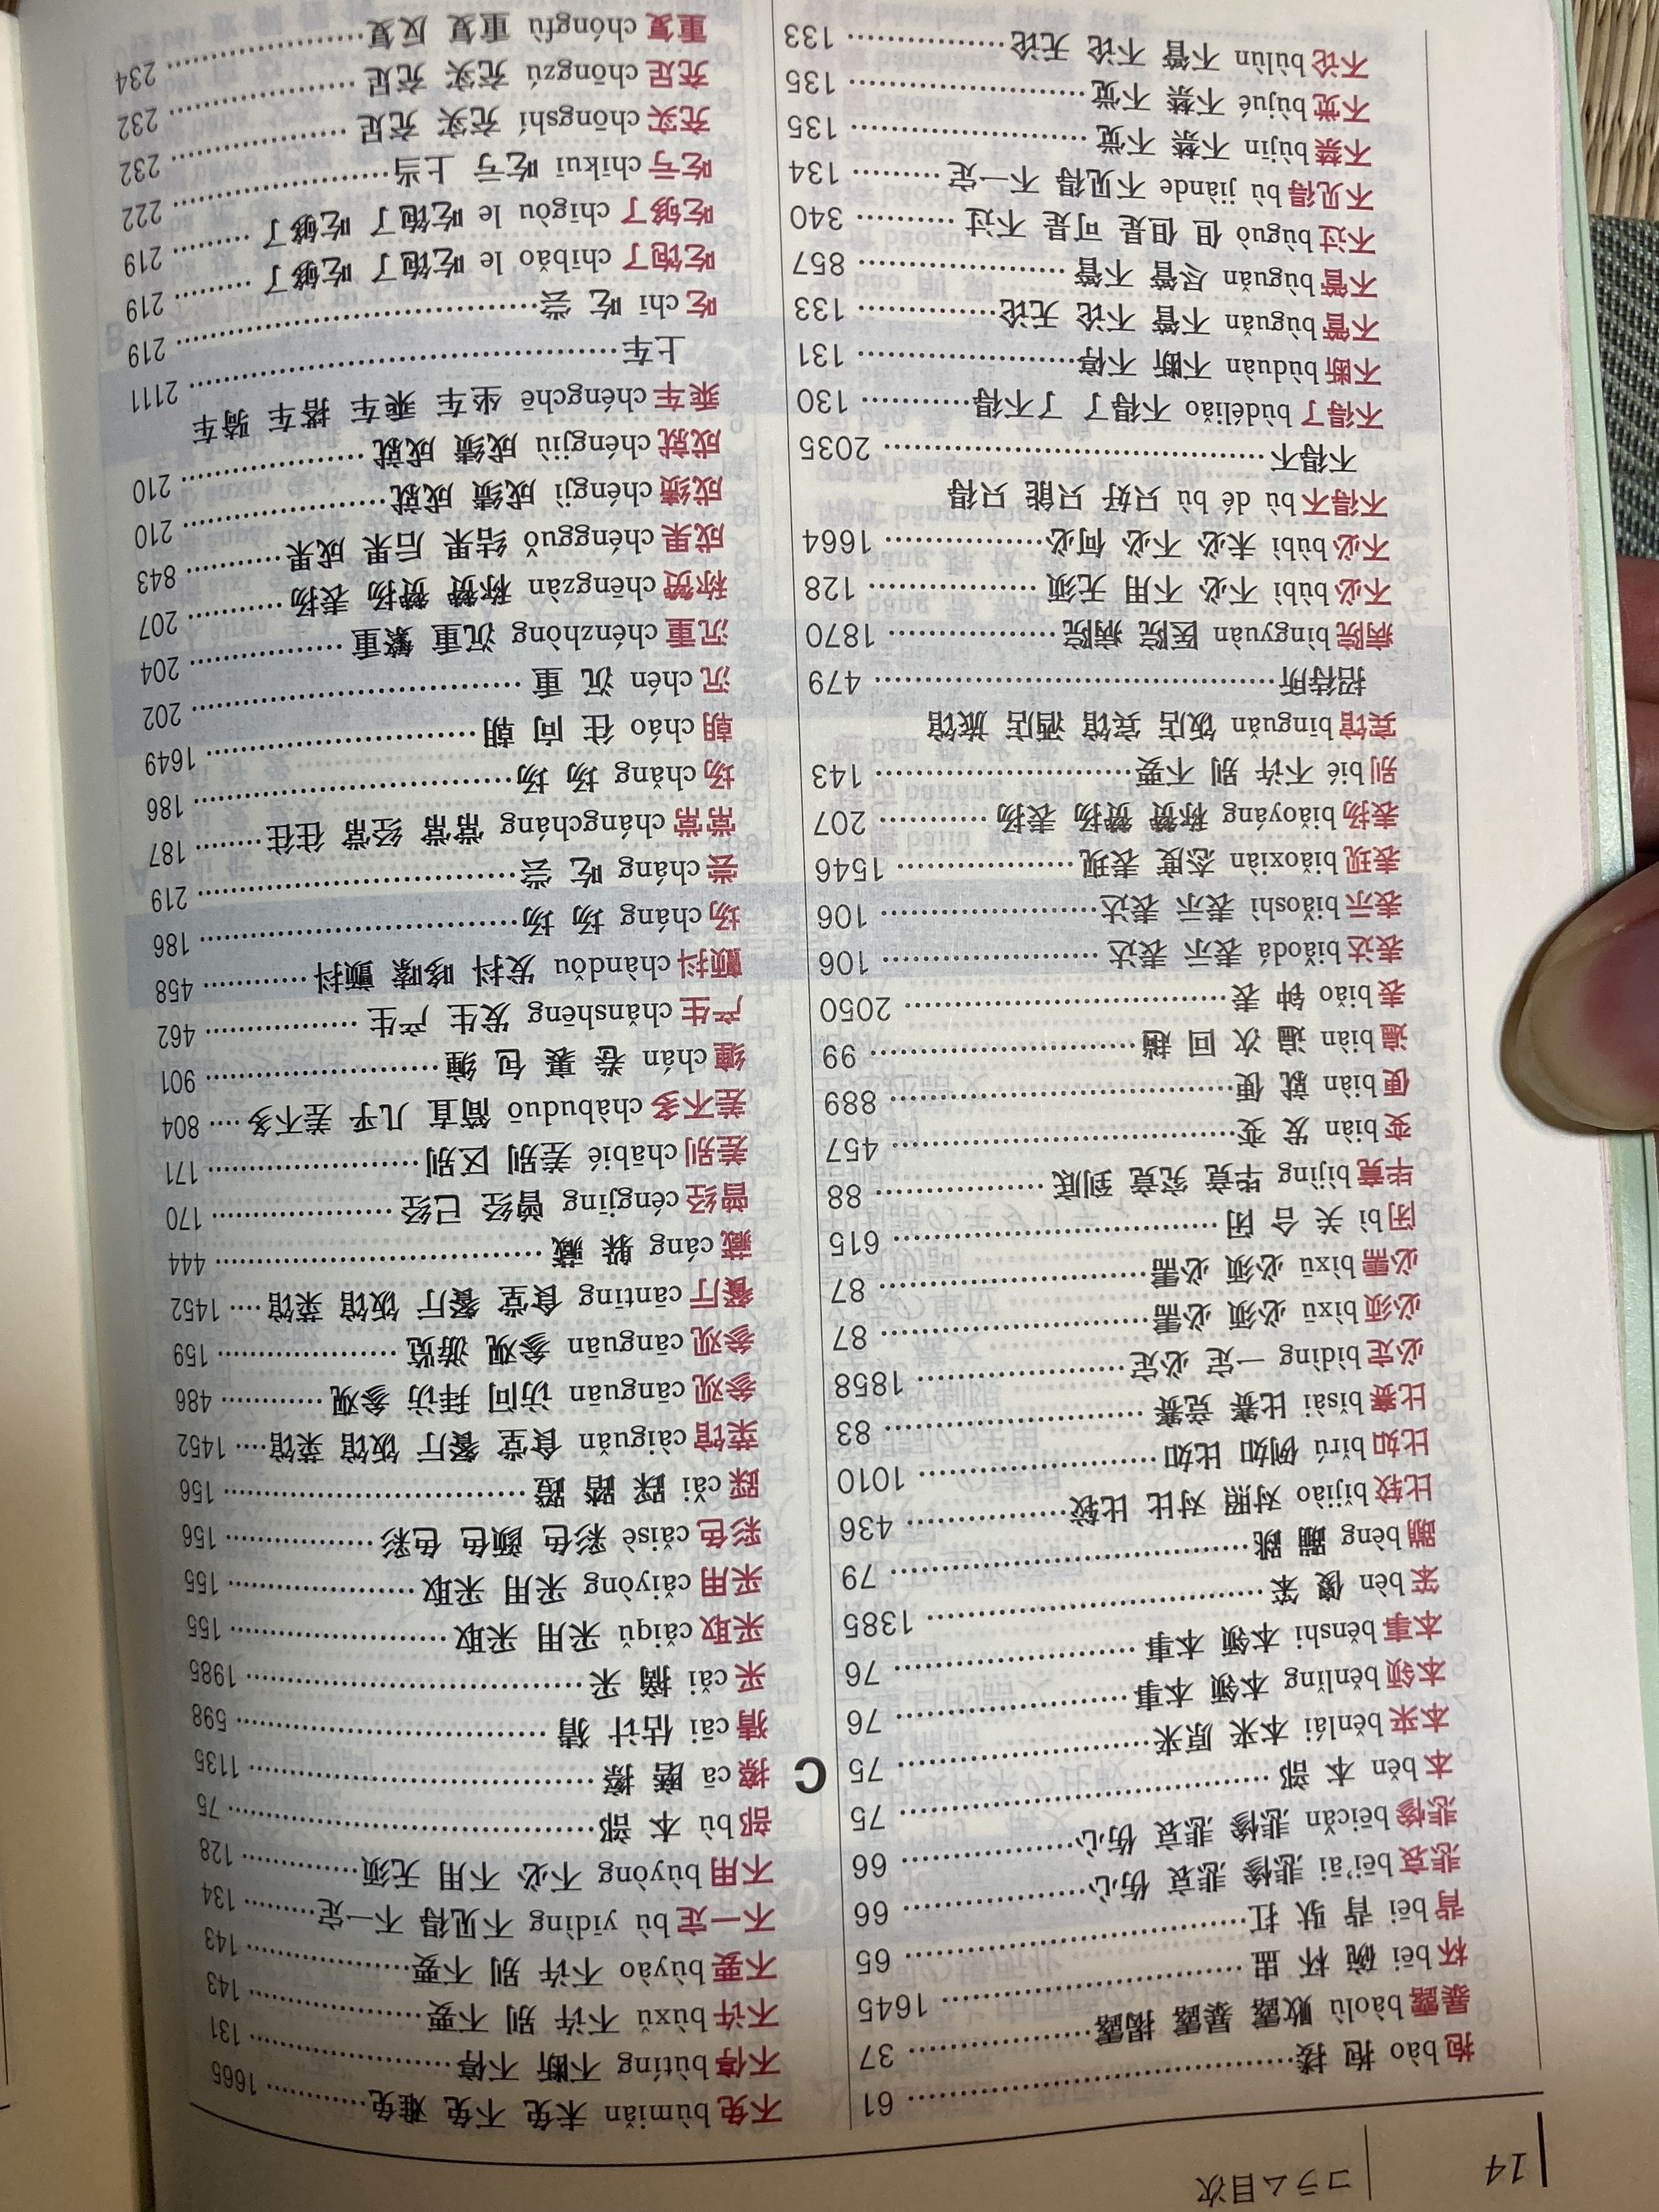 14 コラム目次
抱 bào 抱 搂 …… 61
暴露 bàolù 败露 暴露 揭露 …… 37
杯 bēi 碗 杯 皿 …… 1645
背 bēi 背 驮 扛 …… 65
悲哀 bēi'āi 悲惨 悲哀 伤心 …… 66
悲惨 bēicǎn 悲惨 悲哀 伤心 …… 66
本 běn 本 部 …… 75
本来 běnlái 本来 原来 …… 75
本领 běnlǐng 本领 本事 …… 76
本事 běnshi 本领 本事 …… 76
笨 bèn 傻 笨 …… 1385
蹦 bèng 蹦 跳 …… 79
比较 bǐjiào 对照 对比 比较 …… 436
比如 bǐrú 例如 比如 …… 1010
比赛 bǐsài 比赛 竞赛 …… 83
必定 bìdìng 一定 必定 …… 1858
必须 bìxū 必须 必需 …… 87
必需 bìxū 必须 必需 …… 87
闭 bì 关 合 闭 …… 615
毕竟 bìjìng 毕竟 究竟 到底 …… 88
变 biàn 发 变 …… 457
便 biàn 就 便 …… 889
遍 biàn 遍 次 回 趟 …… 99
表 biǎo 钟 表 …… 2050
表达 biǎodá 表示 表达 …… 106
表示 biǎoshì 表示 表达 …… 106
表现 biǎoxiàn 态度 表现 …… 1546
表扬 biǎoyáng 称赞 赞扬 表扬 …… 207
别 bié 不许 别 不要 …… 143
宾馆 bīnguǎn 饭店 宾馆 酒店 旅馆
招待所 …… 479
病院 bìngyuàn 医院 病院 …… 1870
不必 bùbì 不必 不用 无须 …… 128
不必 bùbì 未必 不必 何必 …… 1664
不得不 bù dé bù 只好 只能 只得
不得不 …… 2035
不得了 bùdéliǎo 不得了 了不得 …… 130
不断 bùduàn 不断 不停 …… 131
不管 bùguǎn 不管 不论 无论 …… 133
不管 bùguǎn 尽管 不管 …… 857
不过 bùguò 但 但是 可是 不过 …… 340
不见得 bù jiànde 不见得 不一定 …… 134
不禁 bùjīn 不禁 不觉 …… 135
不觉 bùjué 不禁 不觉 …… 135
不论 bùlùn 不管 不论 无论 …… 133
不免 bùmiǎn 未免 不免 难免 …… 1665
不停 bùtíng 不断 不停 …… 131
不许 bùxǔ 不许 别 不要 …… 143
不要 bùyào 不许 别 不要 …… 143
不一定 bù yīdìng 不见得 不一定 …… 134
不用 bùyòng 不必 不用 无须 …… 128
部 bù 本 部 …… 75
C
擦 cā 磨 擦 …… 1135
猜 cāi 估计 猜 …… 598
采 cǎi 摘 采 …… 1985
采取 cǎiqǔ 采用 采取 …… 155
采用 cǎiyòng 采用 采取 …… 155
彩色 cǎisè 彩色 颜色 色彩 …… 156
踩 cǎi 踩 踏 蹬 …… 156
菜馆 càiguǎn 食堂 餐厅 饭馆 菜馆 …… 1452
参观 cānguān 访问 拜访 参观 …… 486
参观 cānguān 参观 游览 …… 159
餐厅 cāntīng 食堂 餐厅 饭馆 菜馆 …… 1452
藏 cáng 躲 藏 …… 444
曾经 céngjīng 曾经 已经 …… 170
差别 chābié 差别 区别 …… 171
差不多 chàbuduō 简直 几乎 差不多 …… 804
缠 chán 卷 裹 包 缠 …… 901
产生 chǎnshēng 发生 产生 …… 462
颤抖 chàndǒu 发抖 哆嗦 颤抖 …… 458
场 cháng 场 场 …… 186
尝 cháng 吃 尝 …… 219
常常 chángcháng 常常 经常 往往 …… 187
场 chǎng 场 场 …… 186
朝 cháo 往 向 朝 …… 1649
沉 chén 沉 重 …… 202
沉重 chénzhòng 沉重 繁重 …… 204
称赞 chēngzàn 称赞 赞扬 表扬 …… 207
成果 chéngguǒ 结果 后果 成果 …… 843
成绩 chéngjì 成绩 成就 …… 210
成就 chéngjiù 成绩 成就 …… 210
乘车 chéngchē 坐车 乘车 搭车 骑车
上车 …… 2111
吃 chī 吃 尝 …… 219
吃饱了 chībǎo le 吃饱了 吃够了 …… 219
吃够了 chīgòu le 吃饱了 吃够了 …… 219
吃亏 chīkuī 吃亏 上当 …… 222
充实 chōngshí 充实 充足 …… 232
充足 chōngzú 充实 充足 …… 232
重复 chóngfù 重复 反复 …… 234